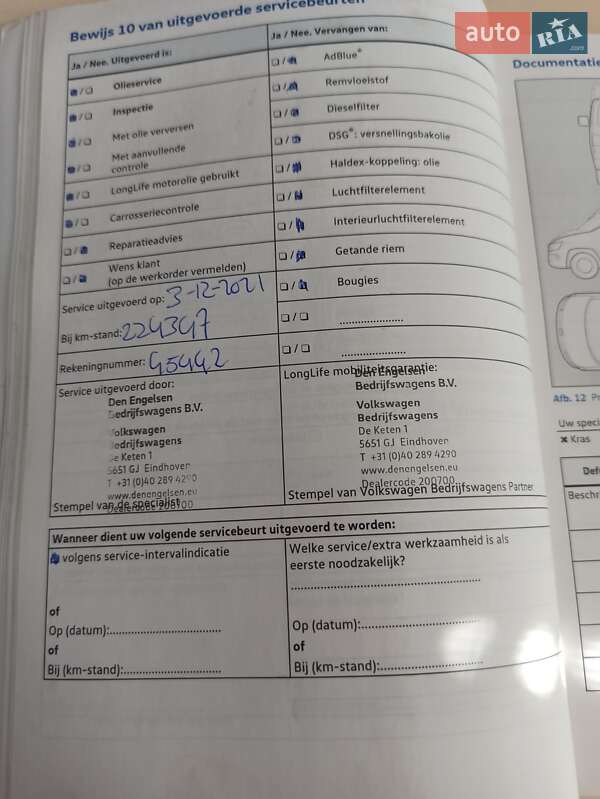 Bewijs 10 van uitgevoerde servicebeurten
auto RIA .com
Ja / Nee. Uitgevoerd is:
Ja / Nee. Vervangen van:
Olieservice
AdBlue®
Inspectie
Remvloeistof
Met olie verversen
Dieselfilter
Met aanvullende
controle
DSG®: versnellingsbakolie
LongLife motorolie gebruikt
Haldex-koppeling: olie
Carrosseriecontrole
Luchtfilterelement
Reparatieadvies
Interieurluchtfilterelement
Wens klant
(op de werkorder vermelden)
Getande riem
Bougies
Service uitgevoerd op: 3-12-2021
Bij km-stand: 224347
Rekeningnummer: 45442
Service uitgevoerd door:
Den Engelsen
Bedrijfswagens B.V.
Volkswagen
Bedrijfswagens
De Keten 1
5651 GJ Eindhoven
T +31 (0)40 289 4290
www.denengelsen.eu
Dealercode 200700
Stempel van de specialist
LongLife mobiliteitsgarantie:
Den Engelsen
Bedrijfswagens B.V.
Volkswagen
Bedrijfswagens
De Keten 1
5651 GJ Eindhoven
T +31 (0)40 289 4290
www.denengelsen.eu
Dealercode 200700
Stempel van Volkswagen Bedrijfswagens Partner
Wanneer dient uw volgende servicebeurt uitgevoerd te worden:
volgens service-intervalindicatie
of
Op (datum):
of
Bij (km-stand):
Welke service/extra werkzaamheid is als
eerste noodzakelijk?
Op (datum):
of
Bij (km-stand):
Documentatie
Afb. 12
Uw speci
Kras
Def
Beschr